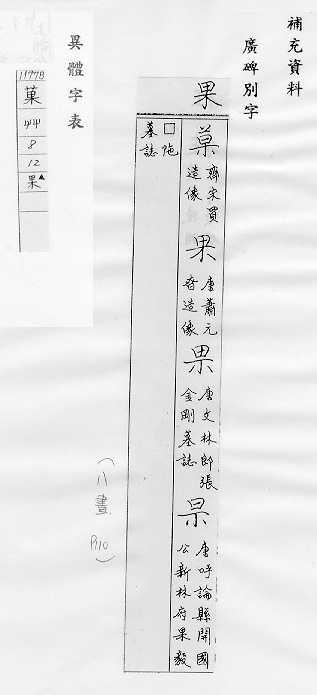 補充資料
廣碑別字
果
菓 齊宋買造像
果 唐蕭元眘造像
果 唐文林郎張金剛墓誌
杲 唐呼論縣開國公新林府果毅
□陁墓誌
(八畫 P.110)
異體字表
11778
菓
艸
8
12
果▲